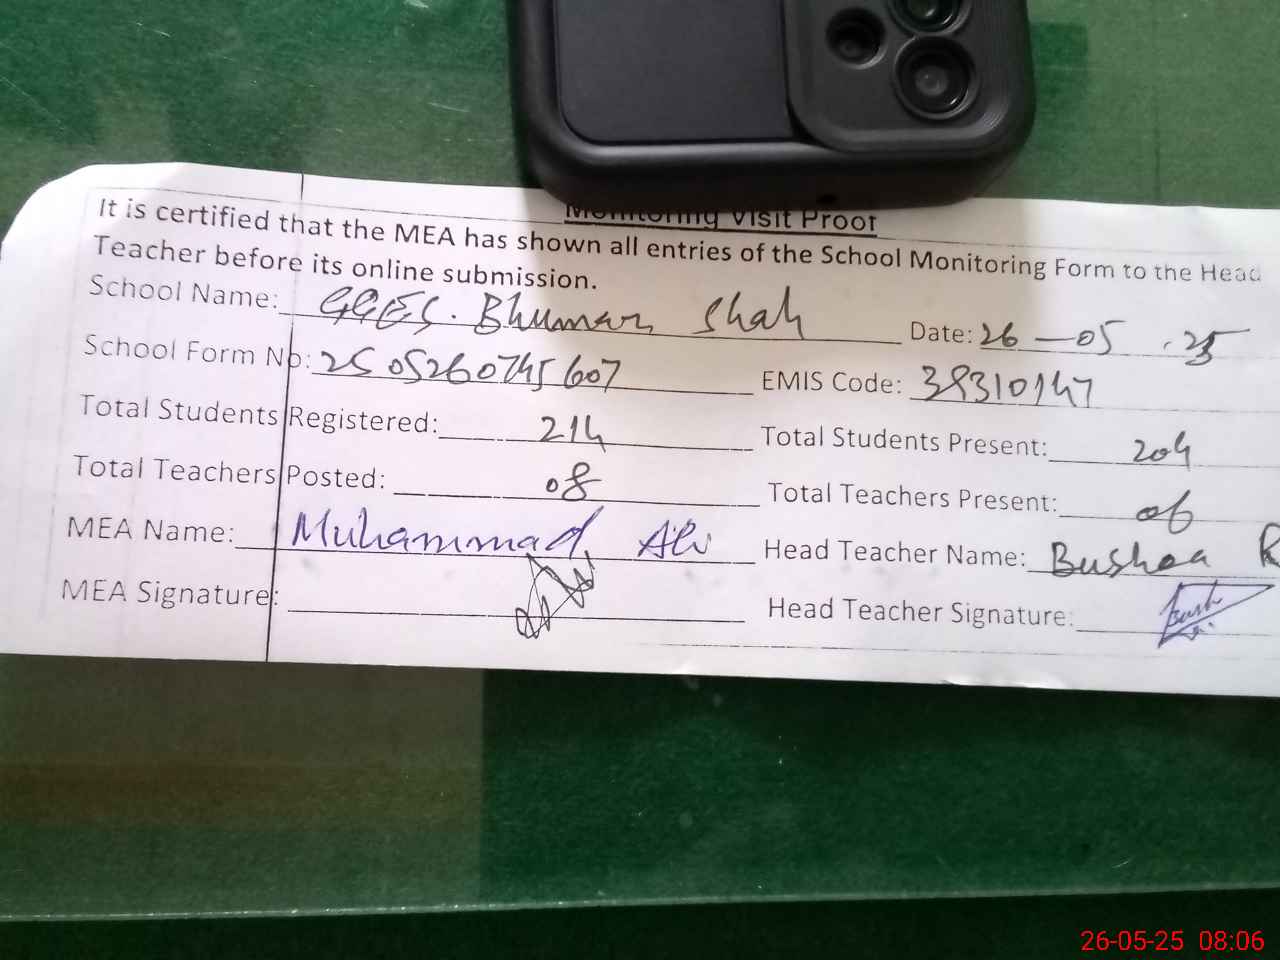 Monitoring Visit Proof
It is certified that the MEA has shown all entries of the School Monitoring Form to the Head
Teacher before its online submission.
School Name: GGES. Bhuman Shah Date: 26-05.25
School Form No: 2505260745607 EMIS Code: 39310147
Total Students Registered: 214 Total Students Present: 204
Total Teachers Posted: 08 Total Teachers Present: 06
MEA Name: Muhammad Ali Head Teacher Name: Bushra
MEA Signature: Head Teacher Signature:
26-05-25 08:06